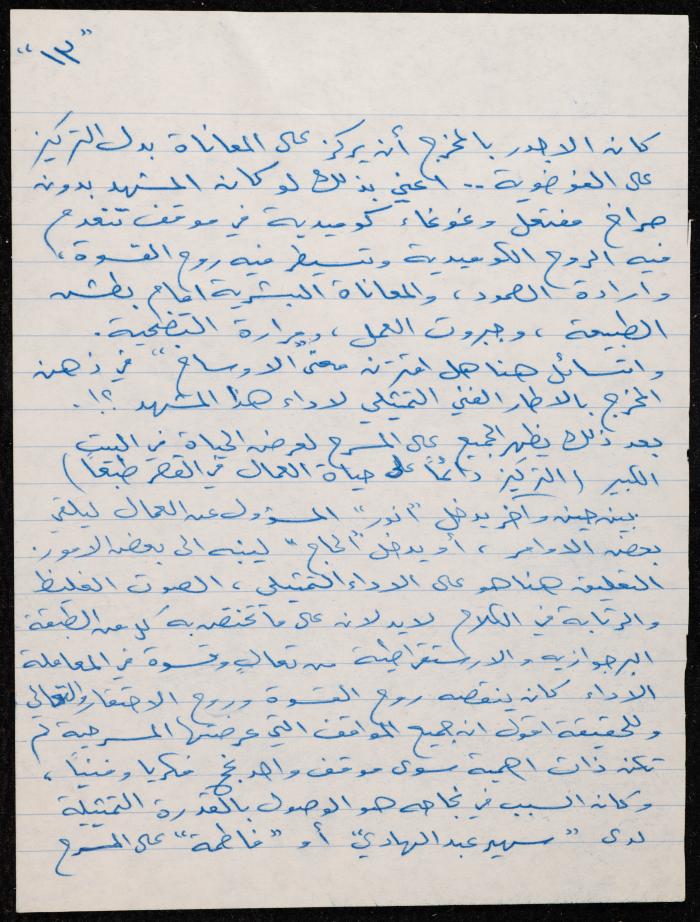 "١٣"
كان الاجدر بالمخرج أن يركز على المعاناة بدل التركيز
على الفوضوية .. اعني بذلك لو كان المشهد بدون
صراخ مفتعل وغوغاء كوميدية في موقف تنعدم
فيه الروح الكوميدية وتسيطر فيه روح القسوة،
وارادة الصمود، والمعاناة البشرية امام بطش
الطبيعة، وجبروت العمل، ومرارة التضحية.
واتسائل هنا هل اقترن معنى "الاوساخ" في ذهن
المخرج بالاطار الفني التمثيلي لاداء هذا المشهد ؟!.
بعد ذلك يظهر الجميع على المسرح لعرض الحياة في البيت
الكبير (التركيز دائماً على حياة العمال في القصر طبعاً)
بين حين وآخر يدخل "انور" المسؤول عن العمال ليلقي
بعض الاوامر، أو يدخل "الحاج" لينبه الى بعض الامور.
التعليق هنا هو على الاداء التمثيلي، الصوت الغليظ
والرتابة في الكلام لا يدلان على ما تختص به كل من الطبقة
البرجوازيه والارستقراطية من تعالي وقسوة في المعاملة
الاداء كان ينقصه روح القسوة وروح الاحتقار والتعالي
وللحقيقة اقول ان جميع المواقف التي عرضتها المسرحية لم
تكن ذات اهمية سوى موقف واحد نجح فكريا وفنياً،
وكان السبب في نجاحه هو الوصول بالقدرة التمثيلية
لدى "سهير عبد الهادي" أو "فاطمة" على المسرح